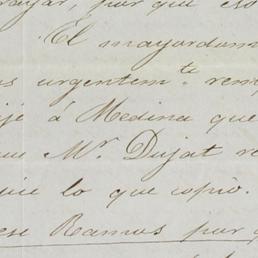 rayar, por que es
El mayordom
s urgentem.te rem
jé á Medina que
Mr. Dujat re
lo que copio.
ese Ramos por q